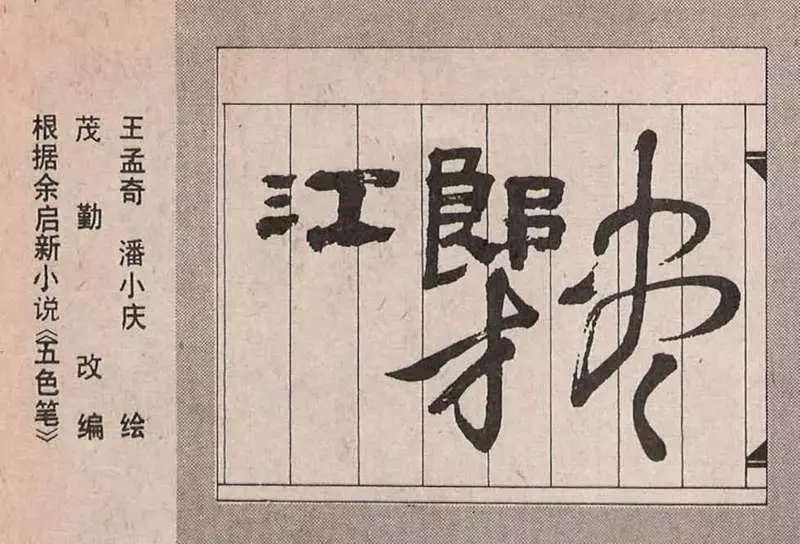 江郎才尽
根据余启新小说《五色笔》
茂勤 改编
王孟奇 潘小庆 绘